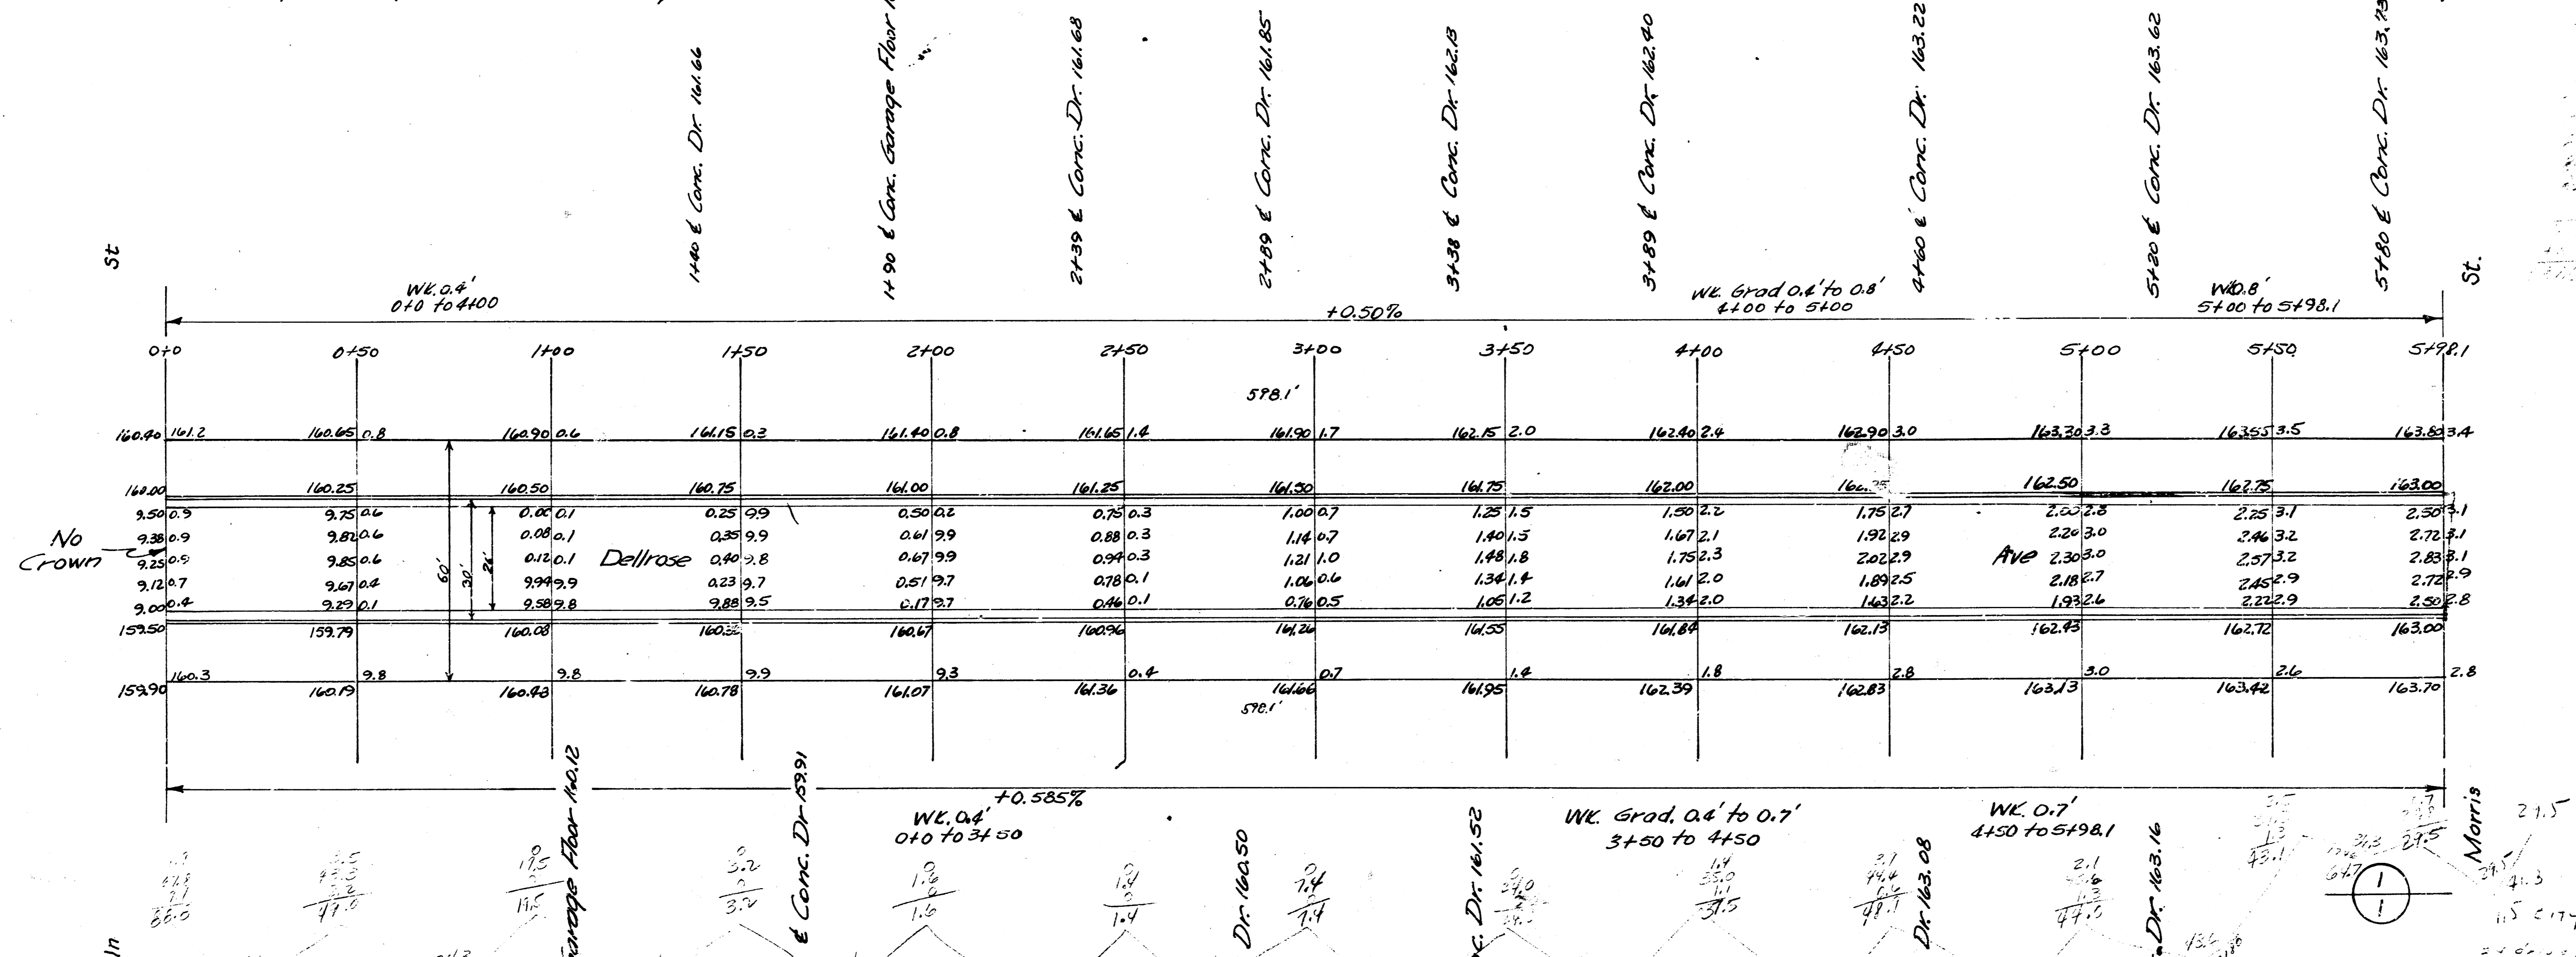 1+40 ℄ Conc. Dr. 161.66
1+90 ℄ Conc. Garage Floor
2+39 ℄ Conc. Dr. 161.68
2+89 ℄ Conc. Dr. 161.85
3+38 ℄ Conc. Dr. 162.13
3+89 ℄ Conc. Dr. 162.40
4+60 ℄ Conc. Dr. 163.22
5+20 ℄ Conc. Dr. 163.62
5+80 ℄ Conc. Dr. 163.73
St
St.
WK. 0.4'
0+0 to 4+00
+0.50%
WK. Grad 0.4' to 0.8'
4+00 to 5+00
WK 0.8'
5+00 to 5+98.1
0+0 0+50 1+00 1+50 2+00 2+50 3+00 3+50 4+00 4+50 5+00 5+50 5+98.1
598.1'
160.40 161.2 160.65 0.8 160.90 0.6 161.15 0.3 161.40 0.8 161.65 1.4 161.90 1.7 162.15 2.0 162.40 2.4 162.90 3.0 163.30 3.3 163.55 3.5 163.80 3.4
160.00 160.25 160.50 160.75 161.00 161.25 161.50 161.75 162.00 162.50 162.75 163.00
9.50 0.9 9.75 0.6 0.00 0.1 0.25 9.9 0.50 0.2 0.75 0.3 1.00 0.7 1.25 1.5 1.50 2.2 1.75 2.7 2.00 2.8 2.25 3.1 2.50 3.1
No 9.38 0.9 9.82 0.6 0.08 0.1 0.35 9.9 0.61 9.9 0.88 0.3 1.14 0.7 1.40 1.5 1.67 2.1 1.92 2.9 2.20 3.0 2.46 3.2 2.72 3.1
Crown 9.25 0.9 9.85 0.6 60' 30' 26' 0.12 0.1 Dellrose 0.40 9.8 0.67 9.9 0.94 0.3 1.21 1.0 1.48 1.8 1.75 2.3 2.02 2.9 Ave 2.30 3.0 2.57 3.2 2.83 3.1
9.12 0.7 9.67 0.4 9.94 9.9 0.23 9.7 0.51 9.7 0.78 0.1 1.06 0.6 1.34 1.4 1.61 2.0 1.89 2.5 2.18 2.7 2.45 2.9 2.72 2.9
9.00 0.4 9.29 0.1 9.58 9.8 9.88 9.5 0.17 9.7 0.46 0.1 0.76 0.5 1.05 1.2 1.34 2.0 1.63 2.2 1.93 2.6 2.22 2.9 2.50 2.8
159.50 159.79 160.08 160.67 160.96 161.26 161.55 161.84 162.13 162.43 162.72 163.00
160.3 9.8 9.8 9.9 9.3 0.4 0.7 1.4 1.8 2.8 3.0 2.6 2.8
159.90 160.19 160.48 160.78 161.07 161.36 161.66 161.95 162.39 162.83 163.13 163.42 163.70
598.1'
+0.585%
WK. 0.4'
0+0 to 3+50
WK. Grad. 0.4' to 0.7'
3+50 to 4+50
WK. 0.7'
4+50 to 5+98.1
Garage Floor 160.12
℄ Conc. Dr 159.91
Dr. 160.50
c. Dr. 161.52
Dr. 163.08
Dr. 163.16
Morris
ln
19.5
19.5
3.2
3.2
1.6
1.6
1.4
1.4
7.4
7.4
29.5
1
1